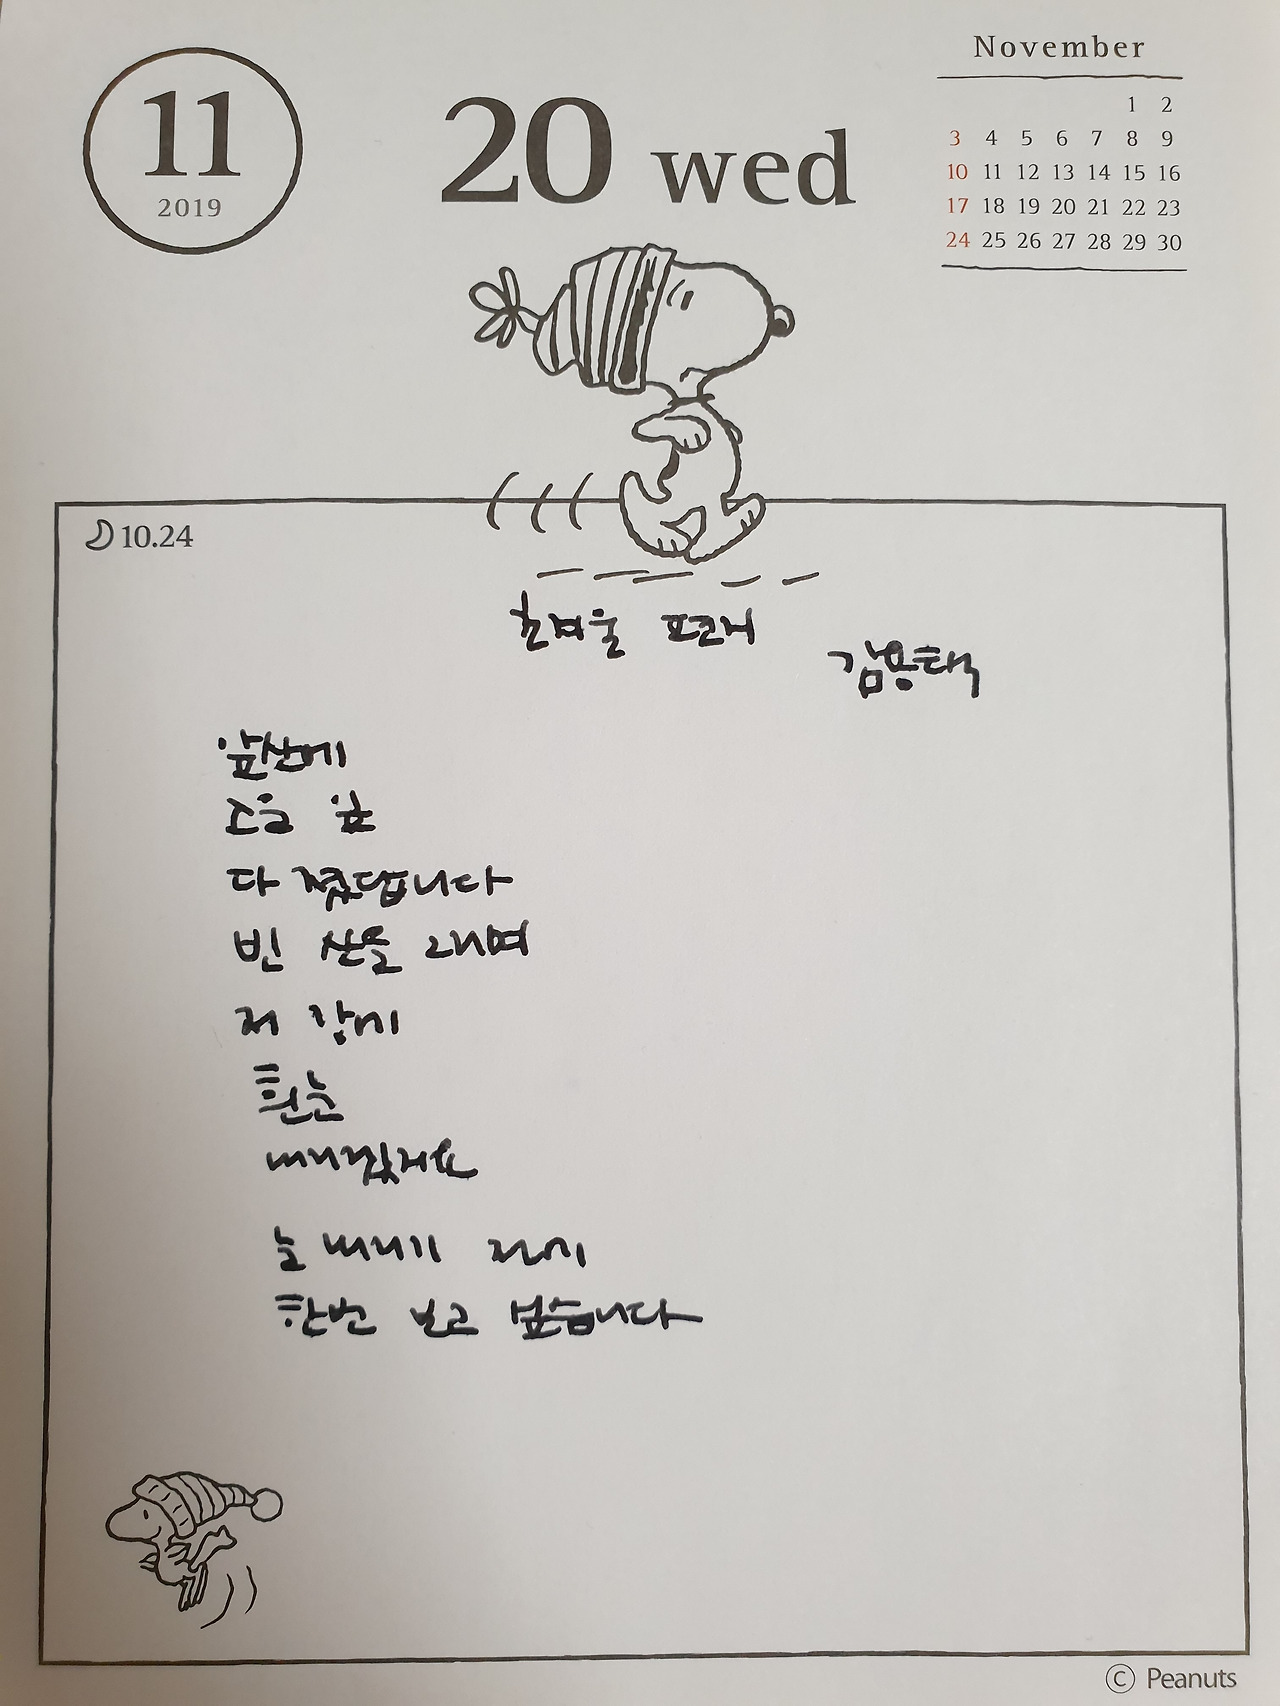 11
2019
20 wed
November
1 2
3 4 5 6 7 8 9
10 11 12 13 14 15 16
17 18 19 20 21 22 23
24 25 26 27 28 29 30
10.24
초겨울 편지
김용택
앞산에
고운 잎
다 졌답니다
빈 산을 그리며
저 강에
흰눈
내리겠지요
눈 내리기 전에
한번 보고 싶습니다
© Peanuts